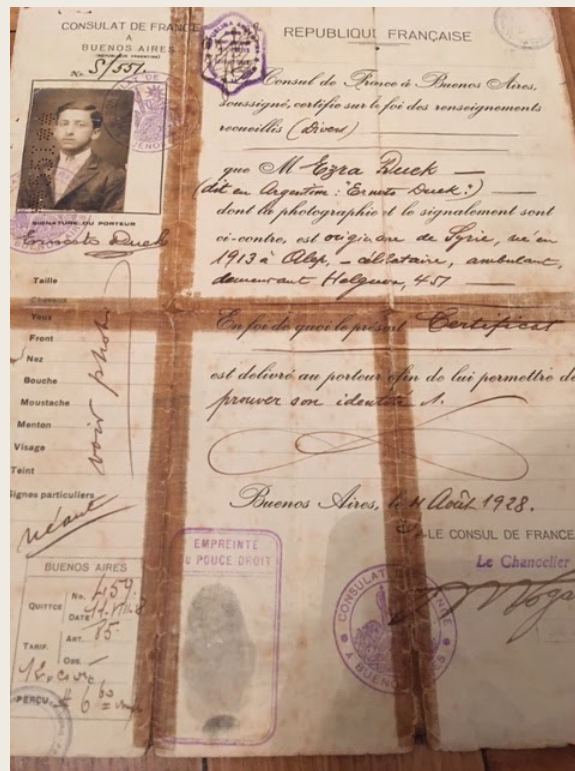 CONSULAT DE FRANCE
A
BUENOS AIRES
(RÉPUBLIQUE ARGENTINE)
No. S/551
SIGNATURE DU PORTEUR
Ernesto Duek
Taille
Cheveux
Yeux
Front
Nez
Bouche
Moustache
Menton
Visage
Teint
Signes particuliers
voir photo
néant
BUENOS AIRES
QUITTCE
No. 459
DATE
ART. 85
TARIF.
OBS. —
PERÇU
REPUBLIQUE FRANÇAISE
Consul de France à Buenos Aires,
soussigné, certifie sur la foi des renseignements
recueillis (Divers)
que M Ezra Duek —
(dit en Argentine: "Ernesto Duek") —
dont la photographie et le signalement sont
ci-contre, est originaire de Syrie, né en
1913 à Alep, - célibataire, ambulant,
demeurant Helguera, 451 —
En foi de quoi le présent Certificat
est délivré au porteur afin de lui permettre de
prouver son identité
Buenos Aires, le 11 Août 1928.
LE CONSUL DE FRANCE
Le Chancelier
EMPREINTE
DU POUCE DROIT
CONSULAT DE FRANCE
A BUENOS AIRES